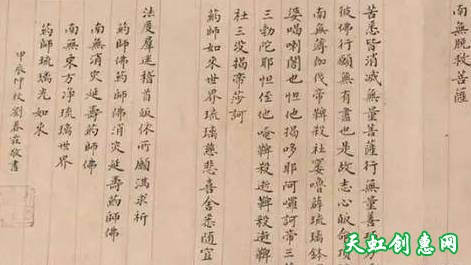 南無脫救菩薩
苦悉皆消滅無量菩薩行無量善巧方
彼佛行願無有盡也是故志心皈命頂
南無簿伽伐帝鞞殺社窶嚕薜琉璃鉢
婆喝喇闍也怛他揭多耶阿囉訶帝三
三勃陀耶怛侄他唵鞞殺逝鞞殺逝鞞
社三沒揭帝莎訶
葯師如來世界琉璃慈悲喜舍悉隨宜
法度羣迷稽首皈依所願滿求祈
葯師佛葯師佛消災延壽葯師佛
南無消災延壽葯師佛
南無東方淨琉璃世界
葯師琉璃光如來
甲辰仲秋劉春敬書
天虹创惠网